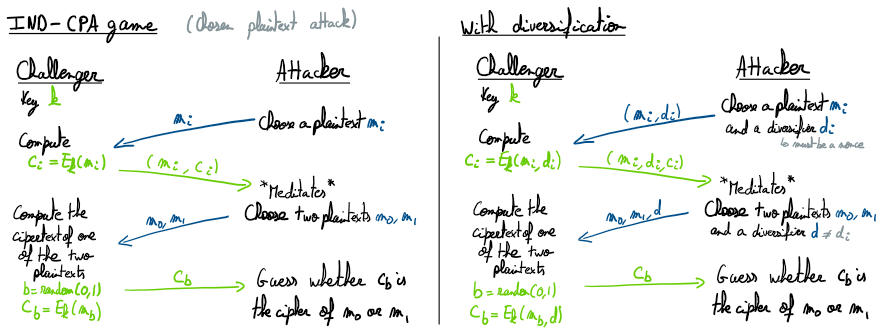 IND-CPA game (chosen plaintext attack)
Challenger Attacker
Key k
Choose a plaintext mi
mi
Compute
ci = Ek(mi)
(mi, ci)
*Meditates*
Choose two plaintexts m0, m1
m0, m1
Compute the
cipertext of one
of the two
plaintexts
b = random(0,1)
Cb = Ek(mb)
Cb
Guess whether cb is
the cipher of m0 or m1
With diversification
Challenger Attacker
Key k
Choose a plaintext mi
and a diversifier di
↳ must be a nonce
(mi, di)
Compute
ci = Ek(mi, di)
(mi, di, ci)
*Meditates*
Choose two plaintexts m0, m1
and a diversifier d ≠ di
m0, m1, d
Compute the
cipertext of one
of the two
plaintexts
b = random(0,1)
Cb = Ek(mb, d)
Cb
Guess whether cb is
the cipher of m0 or m1